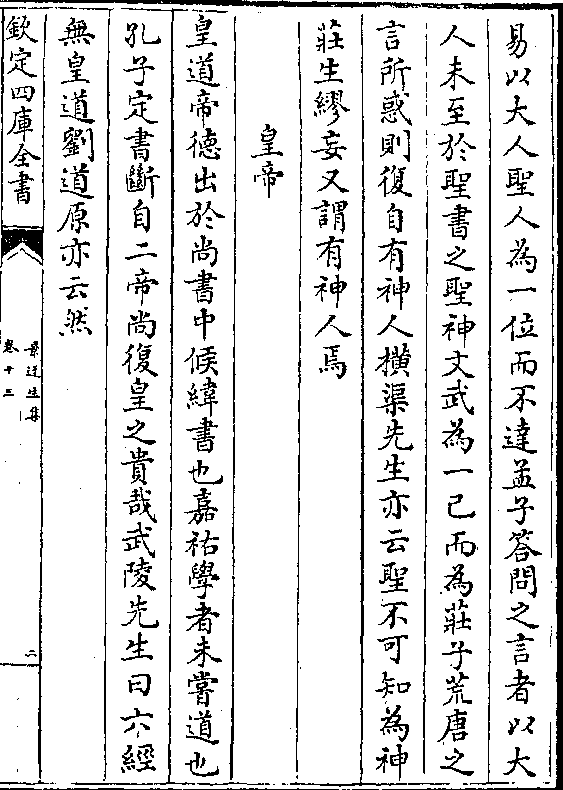 易以大人聖人為一位而不達孟子答問之言者以大
人未至於聖書之聖神文武為一己而為莊子荒唐之
言所惑則復自有神人橫渠先生亦云聖不可知為神
莊生繆妄又謂有神人焉
皇帝
皇道帝德出於尚書中候緯書也嘉祐學者未嘗道也
孔子定書斷自二帝尚復皇之貴哉武陵先生曰六經
無皇道劉道原亦云然
欽定四庫全書
景迂生集
卷十三
二